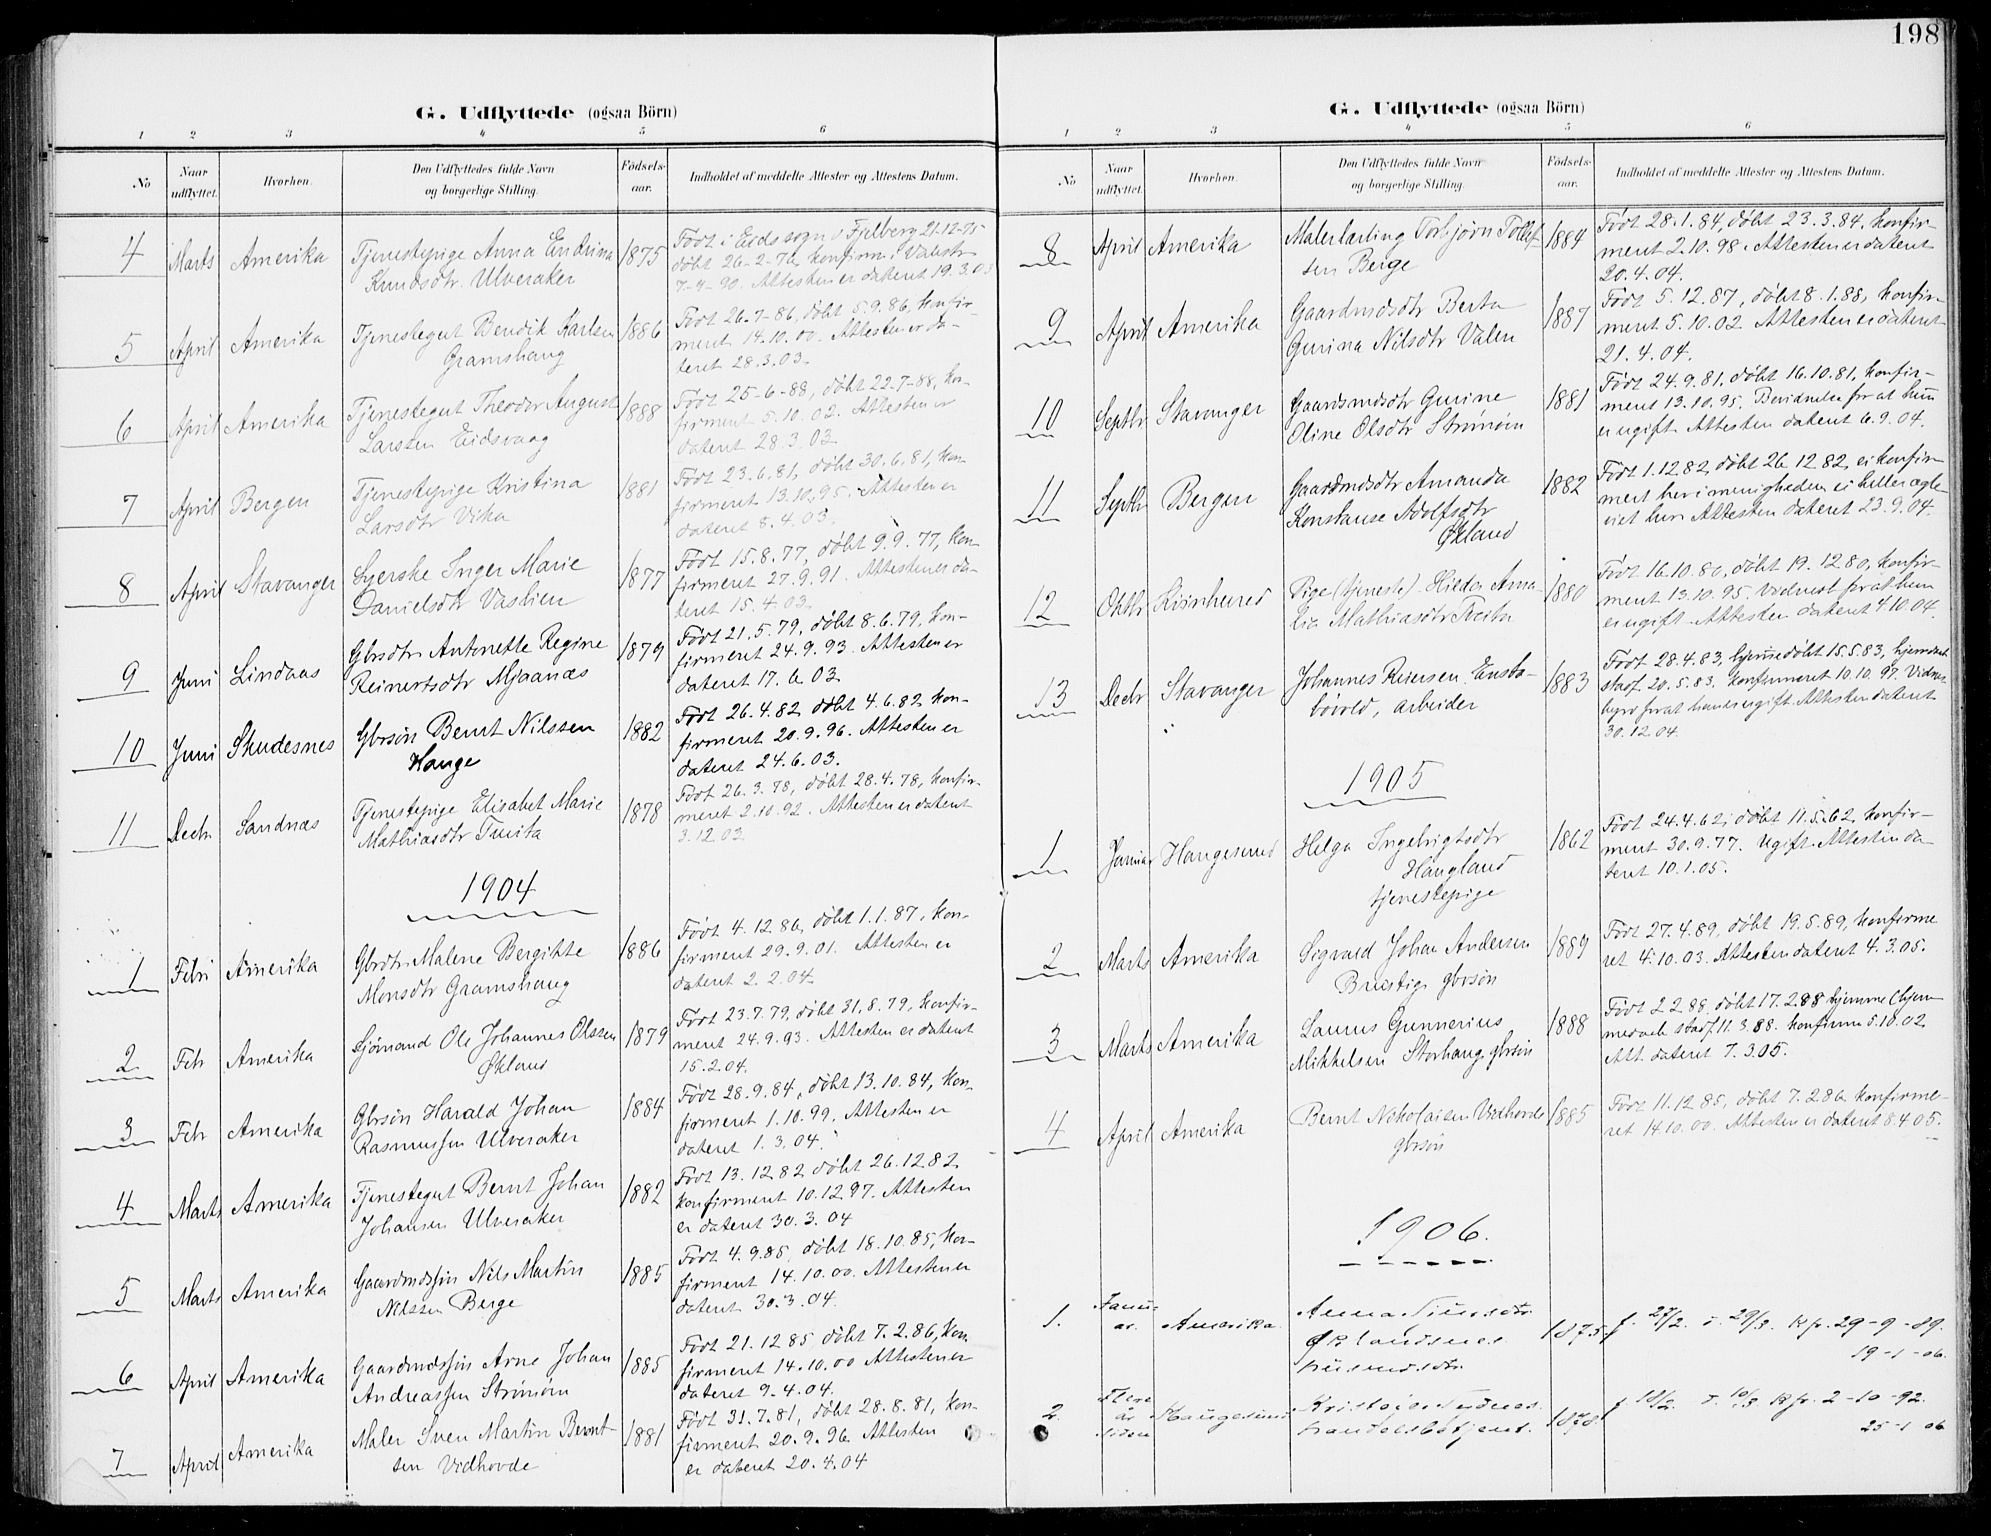 198
G. Udflyttede (ogsaa Börn)
1 2 3 4 5 6
No
Naar udflyttet.
Hvorhen.
Den Udflyttedes fulde Navn og borgerlige Stilling.
Födsels-aar.
Indholdet af meddelte Attester og Attestens Datum.
4 Marts Amerika Tjenestepige Anna Endrina 1875 Født i Eids sogn i Fjelberg 21-12-75
Knudsdtr Ulveraker døbt 26-2-76, konfirm. i Valestr.
7-9-90. Attesten er dateret 19.3.03
5 April Amerika Tjenestegut Bendik Karlsen 1886 Født 26.7.86, døbt 5.9.86, konfir-
Gramshaug meret 14.10.00. Attesten er da-
teret 28.3.03.
6 April Amerika Tjenestegut Theodor August 1888 Født 25-6-88, døbt 22.7-88, kon-
Larsen Eidsvaag firmeret 5.10.02. Attesten er
dateret 28.3.03.
7 April Bergen Tjenestepige Kristina 1881 Født 23.6.81, døbt 30.6.81, kon-
Larsdtr Vika firmeret 13.10.95. Attesten er
dateret 8.4.03.
8 April Stavanger Syerske Inger Marie 1877 Født 15.8.77, døbt 9.9.77, kon-
Danielsdtr Vaslien firmeret 27.9.91. Attesten er da-
teret 15.4.03.
9 Juni Lindaas Gbrsdtr Antonette Regine 1879 Født 21.5.79, døbt 8.6.79, kon-
Reinertsdtr Mjaanæs firmeret 24.9.93. Attesten er
dateret 17.6.03.
10 Juni Skudesnes Gbrsøn Bernt Nilssen 1882 Født 26.4.82 døbt 4.6.82 kon-
Hauge firmeret 20.9.96. Attesten er
dateret 24.6.03.
11 Decbr Sandnæs Tjenestepige Elisabet Marie 1878 Født 26.3.78, døbt 28.4.78, konfir-
Mathiasdtr Tveita meret 2.10.92. Attesten er dateret
3.12.03.
1904
1 Febr Amerika Gbrdtr Malene Bergitte 1886 Født 4.12.86, døbt 1.1.87, kon-
Monsdtr Gramshaug firmeret 29.9.01. Attesten er
dateret 2.2.04.
2 Febr Amerika Sjømand Ole Johannes Olssen 1879 Født 23.7.79, døbt 31.8.79, konfir-
Økland meret 24.9.93. Attesten er dateret
15.2.04.
3 Febr Amerika Gbrsøn Harald Johan 1884 Født 28.9.84, døbt 13.10.84, kon-
Rasmussen Ulveraker firmeret 1.10.99. Attesten er
dateret 1.3.04.
4 Marts Amerika Tjenestegut Bernt Johan 1882 Født 13.12.82 døbt 26.12.82.
Johansen Ulveraker konfirmeret 10.12.97. Attesten
er dateret 30.3.04
5 Marts Amerika Gaardmdssøn Nils Martin 1885 Født 4.9.85, døbt 18.10.85, kon-
Nilssen Berge firmeret 14.10.00. Attesten er
dateret 30.3.04.
6 April Amerika Gaardmdssøn Arne Johan 1885 Født 21.12.85, døbt 7.2.86, kon
Andreassen Strømøm firmeret 14.10.00 Attesten er
dateret 9.4.04.
7 April Amerika Maler Sven Martin Bernt- 1881 Født 31.7.81, døbt 28.8.81, kon-
sen Vidhovde firmeret 20.9.96. Attesten
er dateret 20.4.04
G. Udflyttede (ogsaa Börn)
1 2 3 4 5 6
No
Naar udflyttet.
Hvorhen.
Den Udflyttedes fulde Navn og borgerlige Stilling.
Födsels-aar.
Indholdet af meddelte Attester og Attestens Datum.
8 April Amerika Malerlærling Torbjørn Tollef- 1884 Født 28.1.84, døbt 23.3.84, konfir-
sen Berge meret 2.10.98. Attesten er dateret
20.4.04.
9 April Amerika Gaardmdsdtr Berta 1887 Født 5.12.87, døbt 8.1.88, konfir-
Gurina Nilsdtr Valen meret 5.10.02. Attesten er dateret
21.4.04.
10 Septbr Stavanger Gaardsmdsdtr Gurine 1881 Født 24.9.81, døbt 16.10.81, konfir-
Oline Olsdtr Strømøm meret 13.10.95. Bevidnelse for at hun
er ugift. Attesten dateret 6.9.04.
11 Septbr Bergen Gaardmdsdtr Amanda 1882 Født 1.12.82, døbt 26.12.82, ei konfir-
Konstanse Adolfsdtr meret her i menigheden, ei heller ægte-
Økland viet her. Attesten dateret 23.9.04.
12 Oktbr Kvinherred Pige (tjeneste) Hilda Ama- 1880 Født 16.10.80, døbt 19.12.80, konfir-
lia Mathiasdtr Tveita meret 13.10.95. Vidnesb for at hun
er ugift. Attesten dateret 4.10.04.
13 Decbr Stavanger Johannes Reiersen Ensta- 1883 Født 28.4.83, hjemmedøbt 15.5.83, hjemdaab
bøvold, arbeider stadf. 20.5.83. konfirmeret 10.10.97. Vidnes
byrd for at han er ugift. Attesten dateret
30.12.04.
1905
1 Januar Haugesund Helga Ingebrigtsdtr 1862 Født 24.4.62, døbt 11.5.62, konfir-
Haugland meret 30.9.77. Ugift. Attesten da-
tjenestepige teret 10.1.05.
2 Marts Amerika Sigvald Johan Andersen 1889 Født 27.4.89, døbt 19.5.89, konfirme
gbrsøn ret 4.10.03. Attesten dateret 4.3.05.
3 Marts Amerika Laurus Gunnerius 1888 Født 2.2.88, døbt 17.2.88 hjemme (hjem-
Mikkelsen Storhaug, gbrsøn medaab stadf. 11.3.88. konfirm. 5.10.02.
Att. dateret 7.3.05.
4 April Amerika Bernt Nikolaisen Vidhovde 1885 Født 11.12.85, døbt 7.2.86 konfirme-
gbrsøn ret 14.10.00. Attesten er dateret 8.4.05.
1906.
1. Janu- Amerika. Anna 1875 f. 27/2. d. 29/3. Kfr. 29-9-89.
ar. Øklandsnes 19-1-06.
husmdsdtr.
2. Flere Haugesund Kristoffer 1878 f 18/2. d. 10/3 Kfr. 2-10-92.
år siden handelsbetjent. 25-1 06